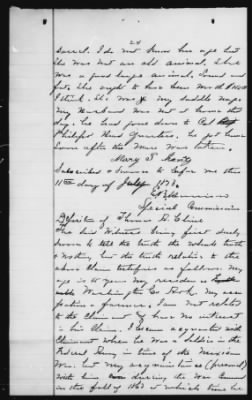 24
sorrel. I do not know her age but
she was not an old animal. She
was a good large animal, sound and
fat. She ought to have been worth $150.00
I think. She was my saddle mare
My Husband was not at home that
day. he had gone down to Col
Philips Head Quarters. he got home
soon after the mare was taken.
Mary S.
Subscribed & sworn to before me this
11th day of July 187
Special Commissioner
Deposition of Thomas D. Cline
The said Witness being first duly
sworn to tell the truth the whole truth
& nothing but the truth relative to the
above claim testifies as follows. My
age is 50 years. My residence
Washington Co Ark. My occupation
a farmer. I am not related
to the Claimant & have no interest
in his Claim. I became acquainted with
Claimant when he was a Soldier in the
Federal Army in time of the Mexican
War. but my acquaintance (personal)
with him during the war
in the fall of 1863 at which time he